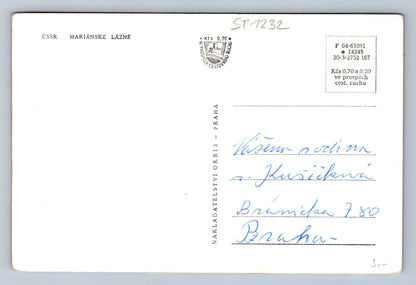 ČSSR MARIÁNSKÉ LÁZNĚ
ST 1232
Kčs 0,20
F 04-61091
★ 14245
20-3-2752 167
Kčs 0,70 a 0,20
ve prospěch
cest. ruchu
NAKLADATELSTVÍ ORBIS — PRAHA
Vážena rodina
s. Kušičková
Bránická 780
Braha-
3.-